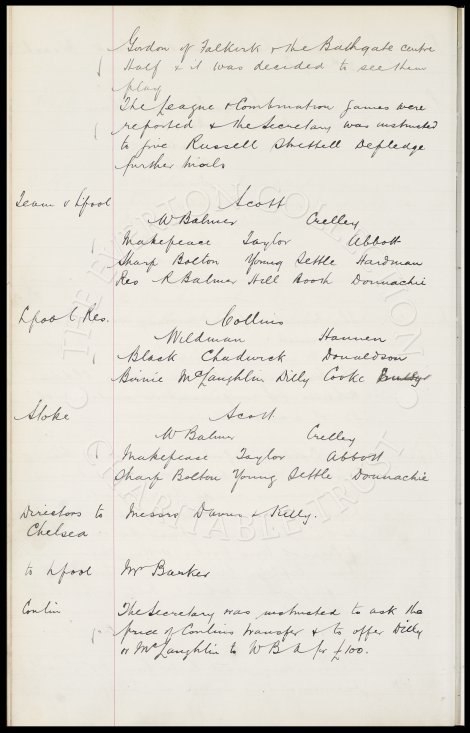 Gordon of Falkirk & the Bathgate centre
Half & it was decided to see them
play
The League & Combination games were
reported & the Secretary was instructed
to give Russell Shettell Depledge
further trials
Team v Lpool Scott
W Balmer Crelley
Makepeace Taylor Abbott
Sharp Bolton Young Settle Hardman
Res R Balmer Hill Booth Donnachie
Lpool C. Res. Collins
Wildman Hannen
Black Chadwick Donaldson
Birnie McLaughlin Dilly Cooke
Stoke Scott
W Balmer Crelley
Makepeace Taylor Abbott
Sharp Bolton Young Settle Donnachie
Directors to Messrs Davies & Kelly.
Chelsea
to Lpool Mr Barker
Conlin The Secretary was instructed to ask the
price of Conlins transfer & to offer Dilly
or McLaughlin to W B A for £100.
THE EVERTON COLLECTION
CHARITABLE TRUST